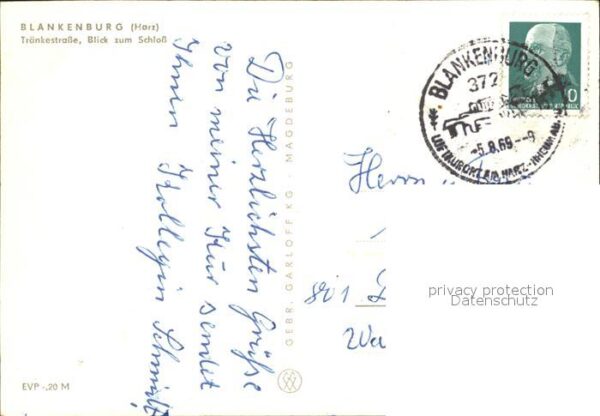 BLANKENBURG (Harz)
Tränkestraße, Blick zum Schloß
Die Herzlichsten Grüße
von meiner Kur sendet
Ihnen Kollegin Schmidt
GEBR. GARLOFF KG · MAGDEBURG
EVP -,20 M
BLANKENBURG
372
-5.8.69--9
LUFTKURORT AM HARZ
Herrn
801
privacy protection
Datenschutz